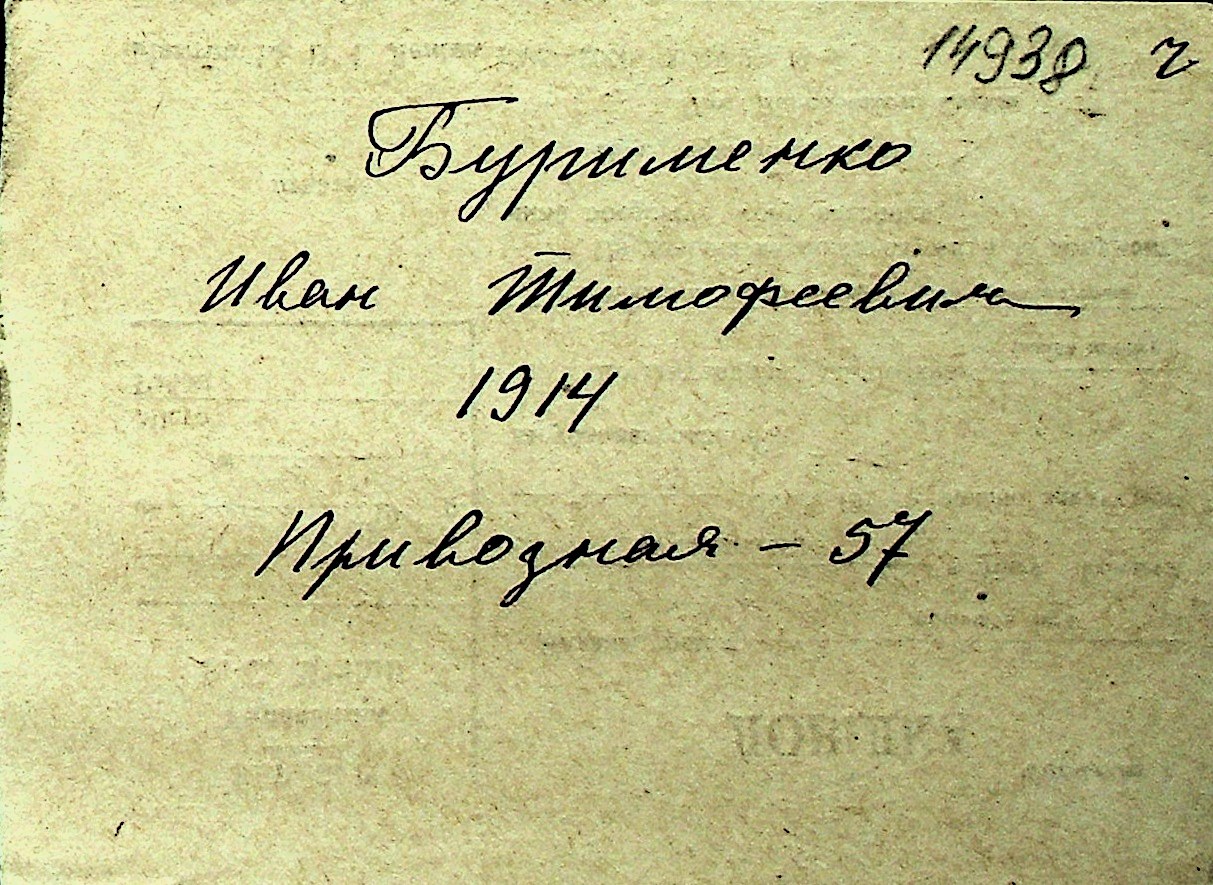 14938 ч
Буrименко
Иван Тимофеевич
1914
Привозная - 57